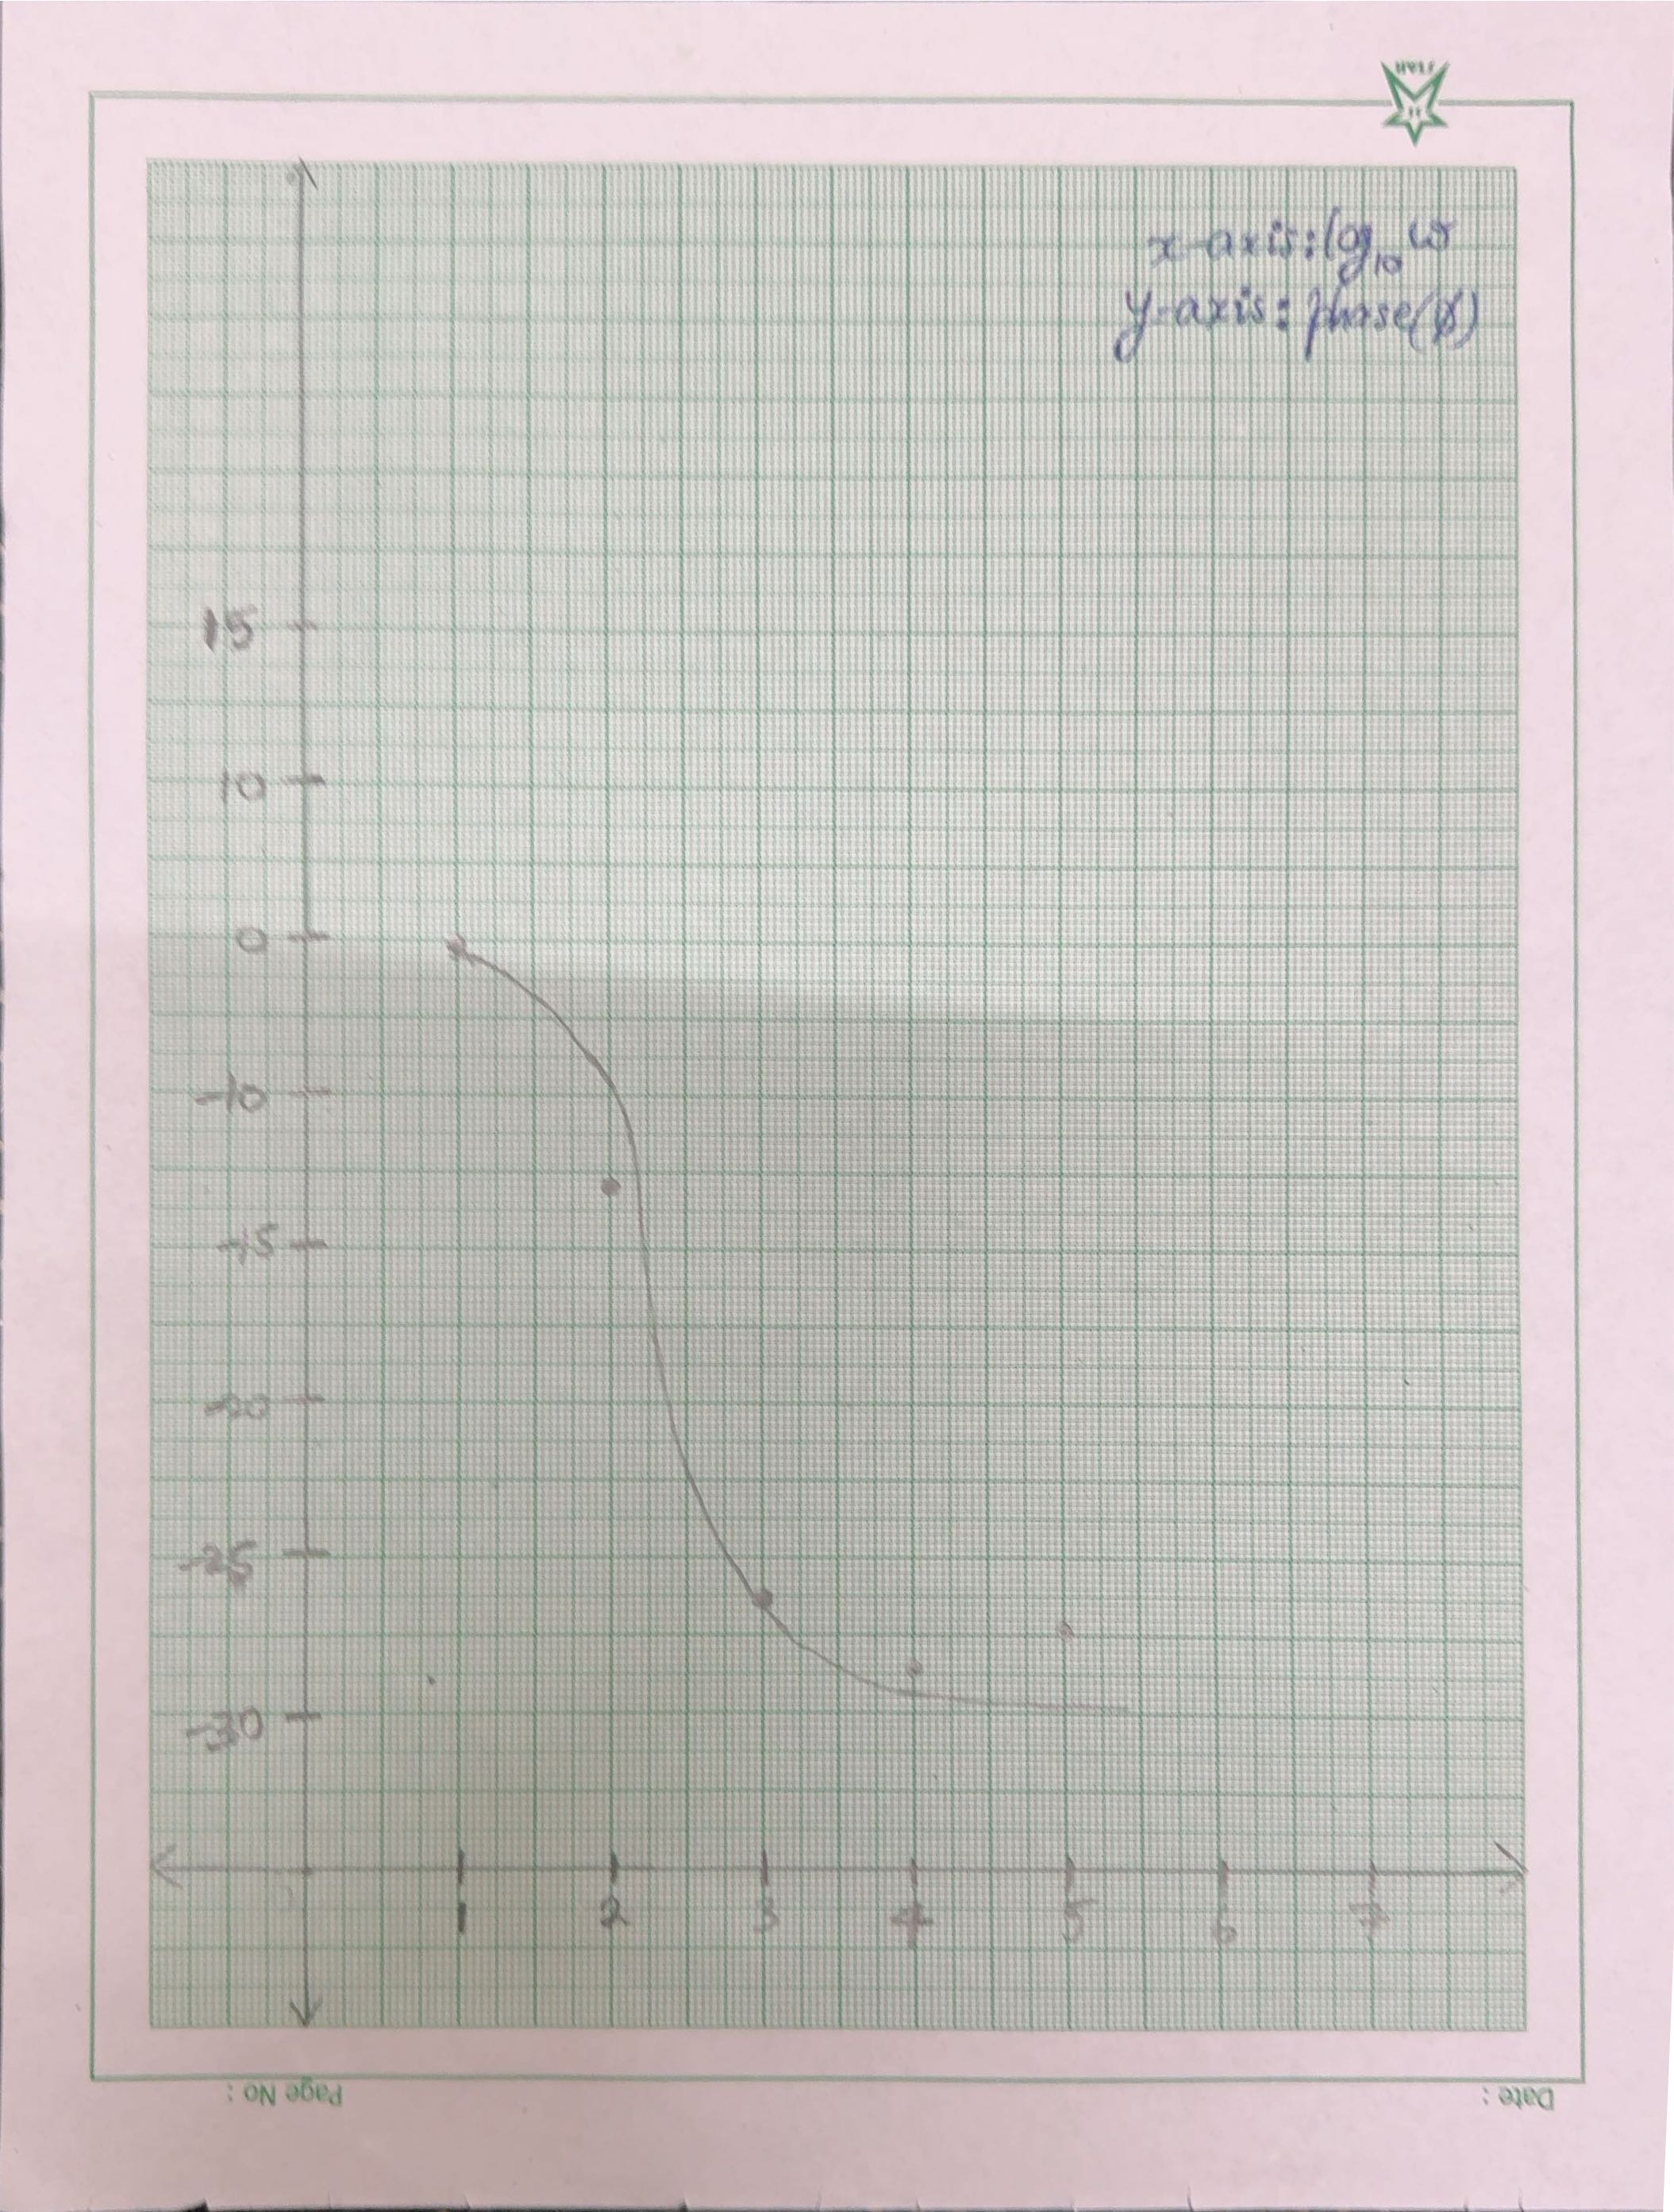 STAR
x-axis: log₁₀ ω
y-axis: phase(ϕ)
15
10
0
-10
-15
-20
-25
-30
1 2 3 4 5 6 7
Page No :
Date :